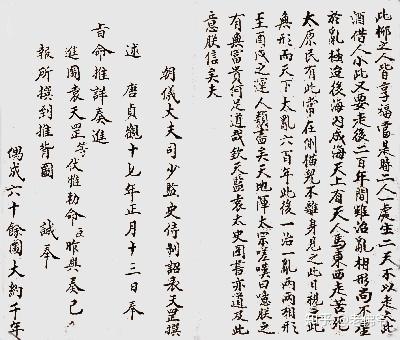 此柳之人皆享福當是時二人一處生二天不以走大此
酒借人小此又要走後二百年間雖治亂相形尚不至
於亂極迨後海內咸海天上有天人馬東西走苦死
太原民有此當在側猫兒不離身見之此日視之此
無形而天下大亂六百年此後一治一亂兩兩相形
至酉戌之運人類盡矣天地渾太宗嗟嘆曰憶朕之
有與富貴何足道哉欽天監袁太史圖書亦道及此
意朕信矣夫
朝儀大夫司少監史侍制詔袁天罡撰
述 唐貞觀十七年正月十三日奉
旨命推詳奏進
進圖袁天罡等伏惟勅命臣昨與奏已
報所撰到推背圖 誠奉
偶成六十餘圖大約千年
知乎